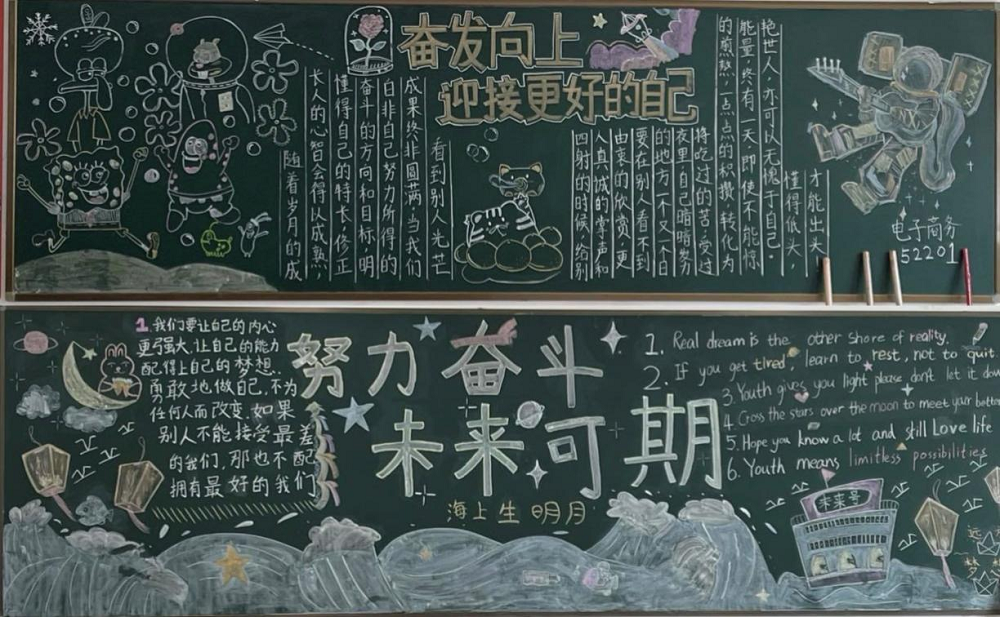 奋发向上
迎接更好的自己
随着岁月的成
长人的心智会得以成熟
懂得自己的特长,修正
奋斗的方向和目标,明
白非自己努力所得的
成果终非圆满,当我们
看到别人光芒
四射的时候,给别
人真诚的掌声和
由衷的欣赏,更
要在别人看不到
的地方一个又一个日
夜里自己暗暗努力
将吃过的苦,受过
的煎熬,一点点的积攒,转化为
能量,终有一天,即使不能惊
艳世人,亦可以无愧于自己.
懂得低头,
才能出头
电子商务
52201
1.我们要让自己的内心
更强大,让自己的能力
配得上自己的梦想..
勇敢地做自己,不为
任何人而改变.如果
别人不能接受最差
的我们,那也不配
拥有最好的我们
努力奋斗
未来可期
海上生明月
1. Real dream is the other shore of reality.
2. If you get tired, learn to rest, not to quit
3. Youth gives you light please don't let it down
4. Cross the stars over the moon to meet your better
5. Hope you know a lot and still Love life
6. Youth means limitless possibilities
未来号
远
梦